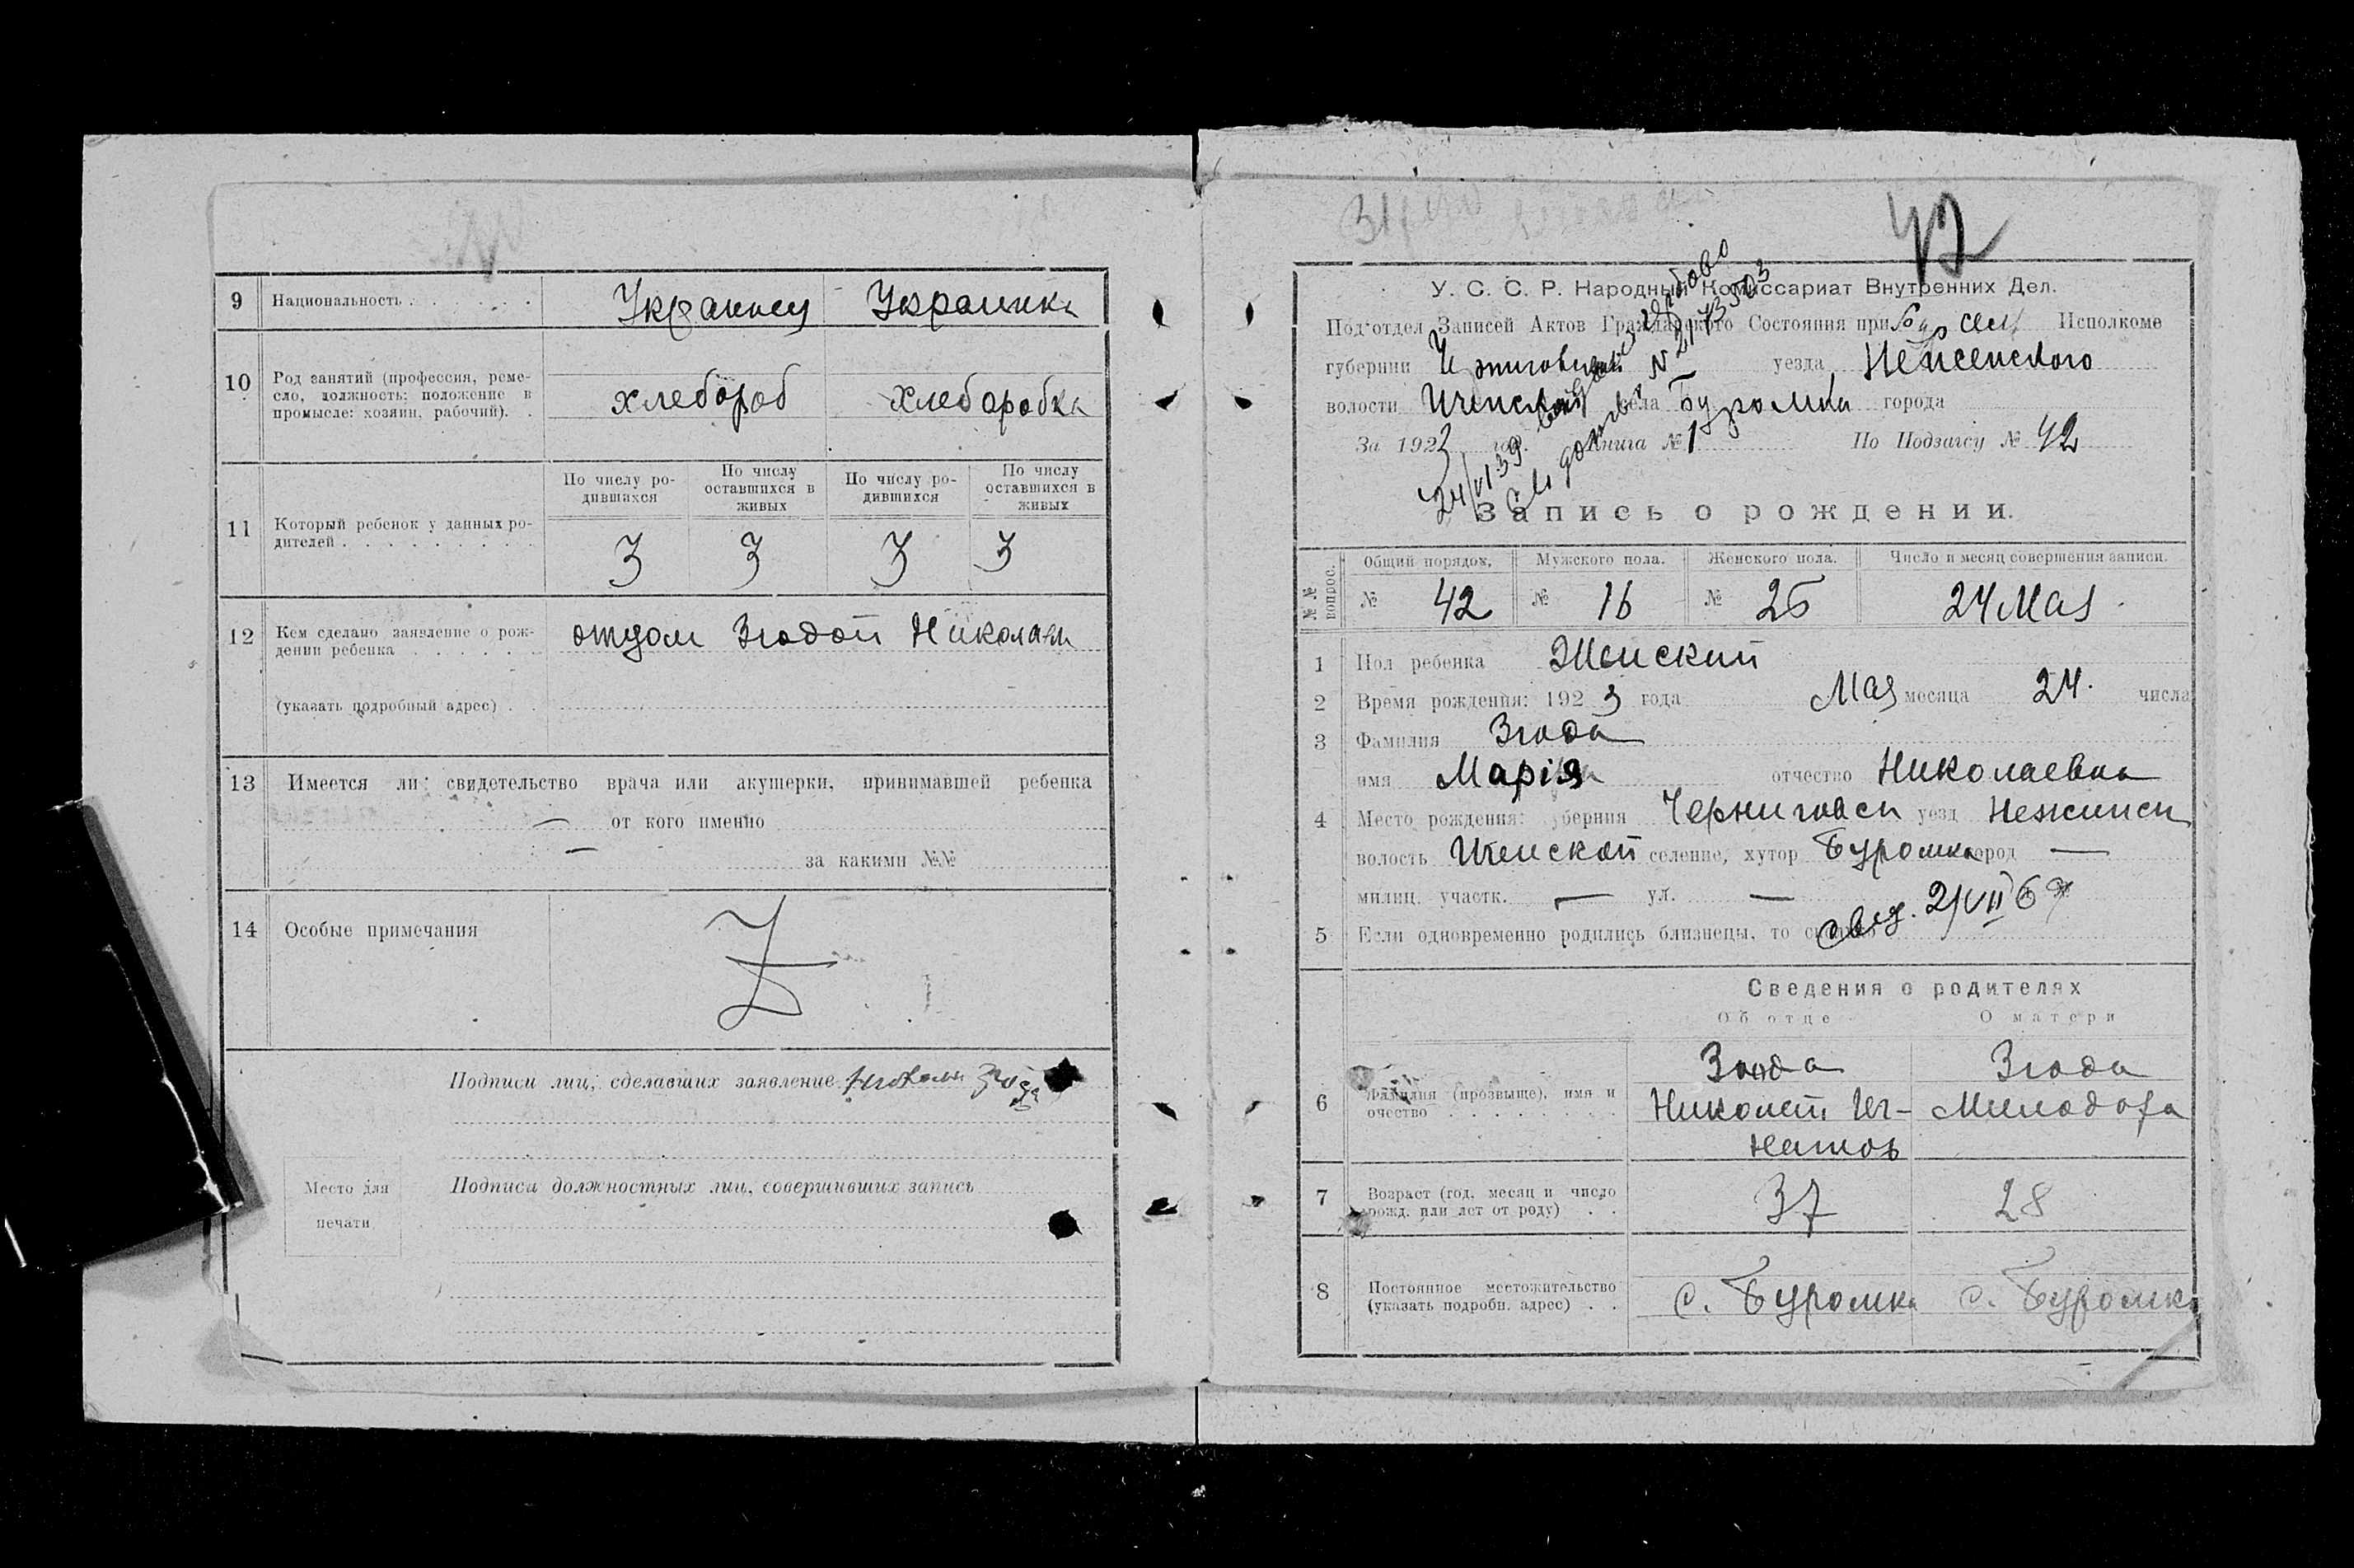 9 Национальность Украинец Украинка
10 Род занятий (профессия, реме-
сло, должность: положение в
промысле: хозяин, рабочий). хлебороб хлеборобка
По числу ро-
дившихся
По числу
оставшихся в
живых
По числу ро-
дившихся
По числу
оставшихся в
живых
11 Который ребенок у данных ро-
дителей 3 3 3 3
12 Кем сделано заявление о рож-
дении ребенка отцом Згодой Николаем
(указать подробный адрес)
13 Имеется ли свидетельство врача или акушерки, принимавшей ребенка
— от кого именно
— за какими №№
14 Особые примечания
Подписи лиц, сделавших заявление Згода
Подписи должностных лиц, совершивших запись
Место для
печати
42
У. С. С. Р. Народный Комиссариат Внутренних Дел.
Под'отдел Записей Актов Гражданского Состояния при Исполкоме
губернии уезда
волости Иченской села Буромки города
За 1923 год. Книга № 1 По Подзагсу № 42
Запись о рождении.
№ № вопрос.
Общий порядок, Мужского пола. Женского пола. Число и месяц совершения записи.
№ 42 № 16 № 26 24 Мая
1 Пол ребенка Женский
2 Время рождения: 1923 года Мая месяца 24. числа
3 Фамилия Згода
имя Марія отчество Николаевна
4 Место рождения: губерния Черниговск уезд Нежинск
волость Иченской селение, хутор Буромка город —
милиц. участк. — ул. —
свид. 2/VII 67
5 Если одновременно родились близнецы, то сколько
Сведения о родителях
Об отце О матери
6 Фамилия (прозвыще), имя и
очество
Згода
Николай Иг-
натов
Згода
Минодора
7 Возраст (год, месяц и число
рожд. или лет от роду) 37 28
8 Постоянное местожительство
(указать подробн. адрес) с. Буромка с. Буромка